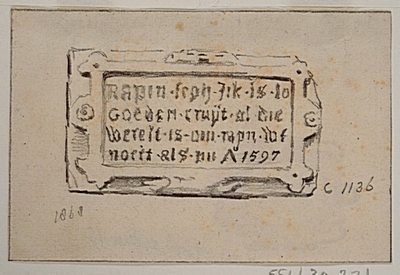 RAPIN · segh · Jck · is · so
GOEDEN · cruyt · al die
Werelt · is · om · rapn · wt
noeit · als · nu A 1597
C 1136
1868